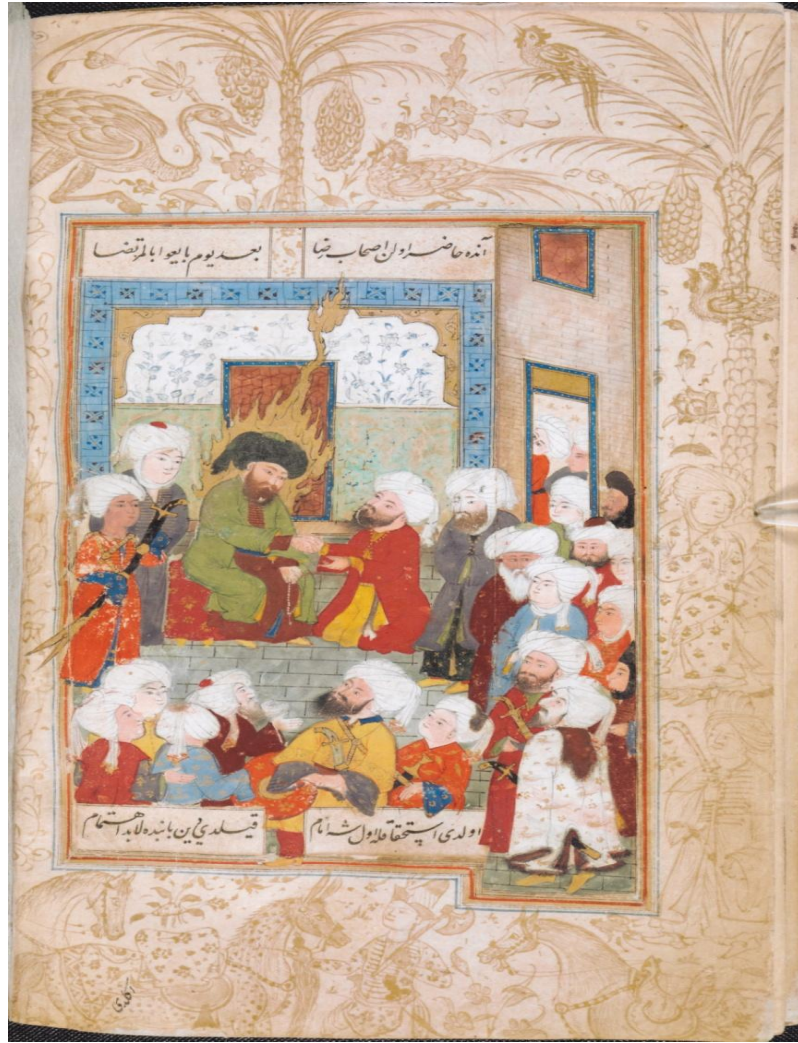 آنده حاضر اولن اصحاب رضا
بعد یوم بایعوا بالمرتضا
اولدی استحقاقله اول شه امام
قیلدی دین باننده لابد اهتمام